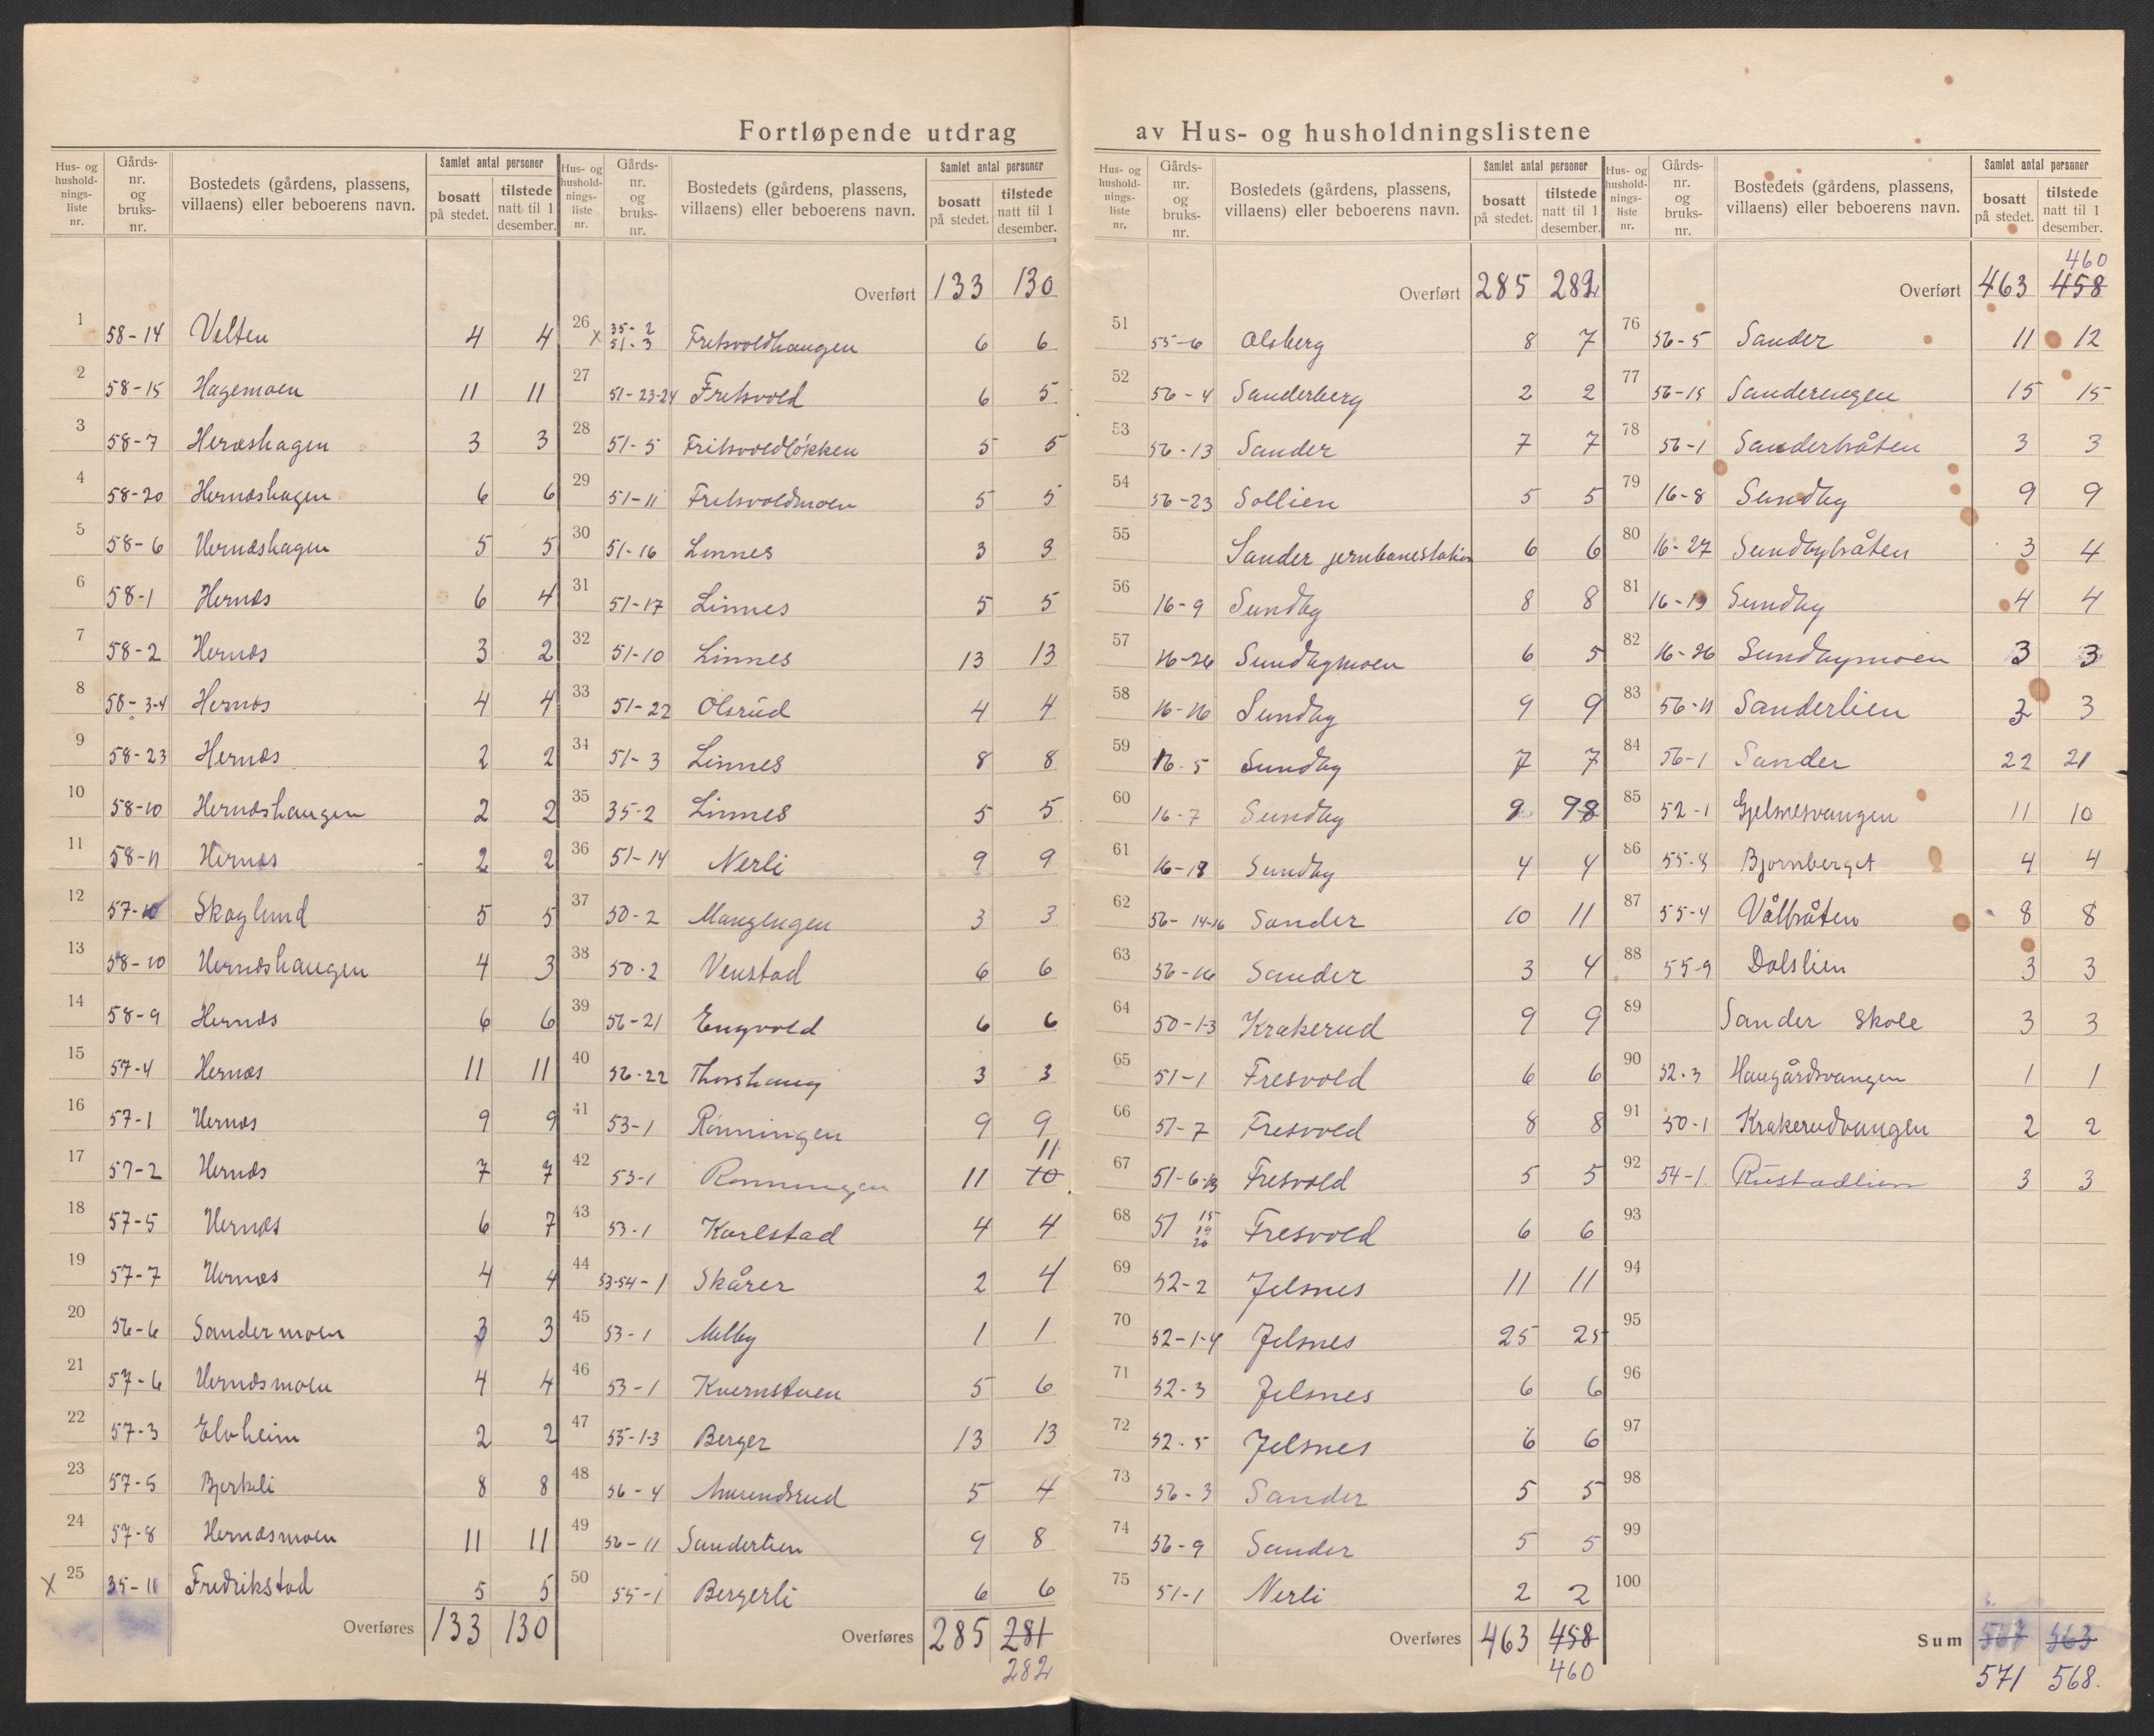 Fortløpende utdrag av Hus- og husholdningslistene
Hus- og hushold-nings-liste nr. | Gårds-nr. og bruks-nr. | Bostedets (gårdens, plassens, villaens) eller beboerens navn. | Samlet antal personer | bosatt på stedet. | tilstede natt til 1 desember.
1 58-14 Velten 4 4
2 58-15 Hagemoen 11 11
3 58-7 Herneshagen 3 3
4 58-20 Hernæshagen 6 6
5 58-6 Hernæshagen 5 5
6 58-1 Hernæs 6 4
7 58-2 Hernæs 3 2
8 58-3-4 Hernæs 4 4
9 58-23 Hernæs 2 2
10 58-10 Hernæshaugen 2 2
11 58-11 Hernæs 2 2
12 57-10 Skoglund 5 5
13 58-10 Hernæshaugen 4 3
14 58-9 Hernæs 6 6
15 57-4 Hernæs 11 11
16 57-1 Hernæs 9 9
17 57-2 Hernæs 7 7
18 57-5 Hernæs 6 7
19 57-7 Hernæs 4 4
20 56-6 Sandermoen 3 3
21 57-6 Hernæsmoen 4 4
22 57-3 Elvheim 2 2
23 57-5 Bjerkeli 8 8
24 57-8 Hernæsmoen 11 11
X 25 35-11 Fredrikstad 5 5
Overføres 133 130
Hus- og hushold-nings-liste nr. | Gårds-nr. og bruks-nr. | Bostedets (gårdens, plassens, villaens) eller beboerens navn. | Samlet antal personer | bosatt på stedet. | tilstede natt til 1 desember.
Overført 133 130
26 X 35-2 51-3 Fritsvoldhaugen 6 6
27 51-23-24 Fritsvold 6 5
28 51-5 Fritsvoldløkken 5 5
29 51-11 Fritsvoldmoen 5 5
30 51-16 Linnes 3 3
31 51-17 Linnes 5 5
32 51-10 Linnes 13 13
33 51-22 Olsrud 4 4
34 51-3 Linnes 8 8
35 35-2 Linnes 5 5
36 51-14 Nerli 9 9
37 50-2 Mangengen 3 3
38 50-2 Venstad 6 6
39 56-21 Engvold 6 6
40 56-22 Thorshaug 3 3
41 53-1 Rønningen 9 9
42 53-1 Rønningen 11 10 11
43 53-1 Karlstad 4 4
44 53-54-1 Skårer 2 4
45 53-1 Melby 1 1
46 53-1 Kvernstuen 5 6
47 55-1-3 Berger 13 13
48 56-4 Amundsrud 5 4
49 56-11 Sanderlien 9 8
50 55-1 Bergerli 6 6
Overføres 285 281
282
Hus- og hushold-nings-liste nr. | Gårds-nr. og bruks-nr. | Bostedets (gårdens, plassens, villaens) eller beboerens navn. | Samlet antal personer | bosatt på stedet. | tilstede natt til 1 desember.
Overført 285 282
51 55-6 Olsberg 8 7
52 56-4 Sanderberg 2 2
53 56-13 Sander 7 7
54 56-23 Sollien 5 5
55 Sander jernbanestation 6 6
56 16-9 Sundby 8 8
57 16-26 Sundbymoen 6 5
58 16-16 Sundby 9 9
59 16-5 Sundby 7 7
60 16-7 Sundby 9 9 8
61 16-18 Sundby 4 4
62 56-14-16 Sander 10 11
63 56-16 Sander 3 4
64 50-1-3 Krakerud 9 9
65 51-1 Fresvold 6 6
66 51-7 Fresvold 8 8
67 51-6-13 Fresvold 5 5
68 51 15 19 20 Fresvold 6 6
69 52-2 Jelsnes 11 11
70 52-1-4 Jelsnes 25 25
71 52-3 Jelsnes 6 6
72 52-5 Jelsnes 6 6
73 56-3 Sander 5 5
74 56-9 Sander 5 5
75 51-1 Nerli 2 2
Overføres 463 458
460
Hus- og hushold-nings-liste nr. | Gårds-nr. og bruks-nr. | Bostedets (gårdens, plassens, villaens) eller beboerens navn. | Samlet antal personer | bosatt på stedet. | tilstede natt til 1 desember.
460
Overført 463 458
76 56-5 Sander 11 12
77 56-15 Sanderengen 15 15
78 56-1 Sanderbråten 3 3
79 16-8 Sundby 9 9
80 16-27 Sundbybråten 3 4
81 16-13 Sundby 4 4
82 16-26 Sundbymoen 3 3
83 56-11 Sanderlien 3 3
84 56-1 Sander 22 21
85 52-1 Gjelsnesvangen 11 10
86 55-8 Bjørnberget 4 4
87 55-4 Vålbråten 8 8
88 55-9 Dalslien 3 3
89 Sander skole 3 3
90 52-3 Haugårdsvangen 1 1
91 50-1 Krakerudvangen 2 2
92 54-1 Rustadlien 3 3
93
94
95
96
97
98
99
100
Sum 567 563
571 568.